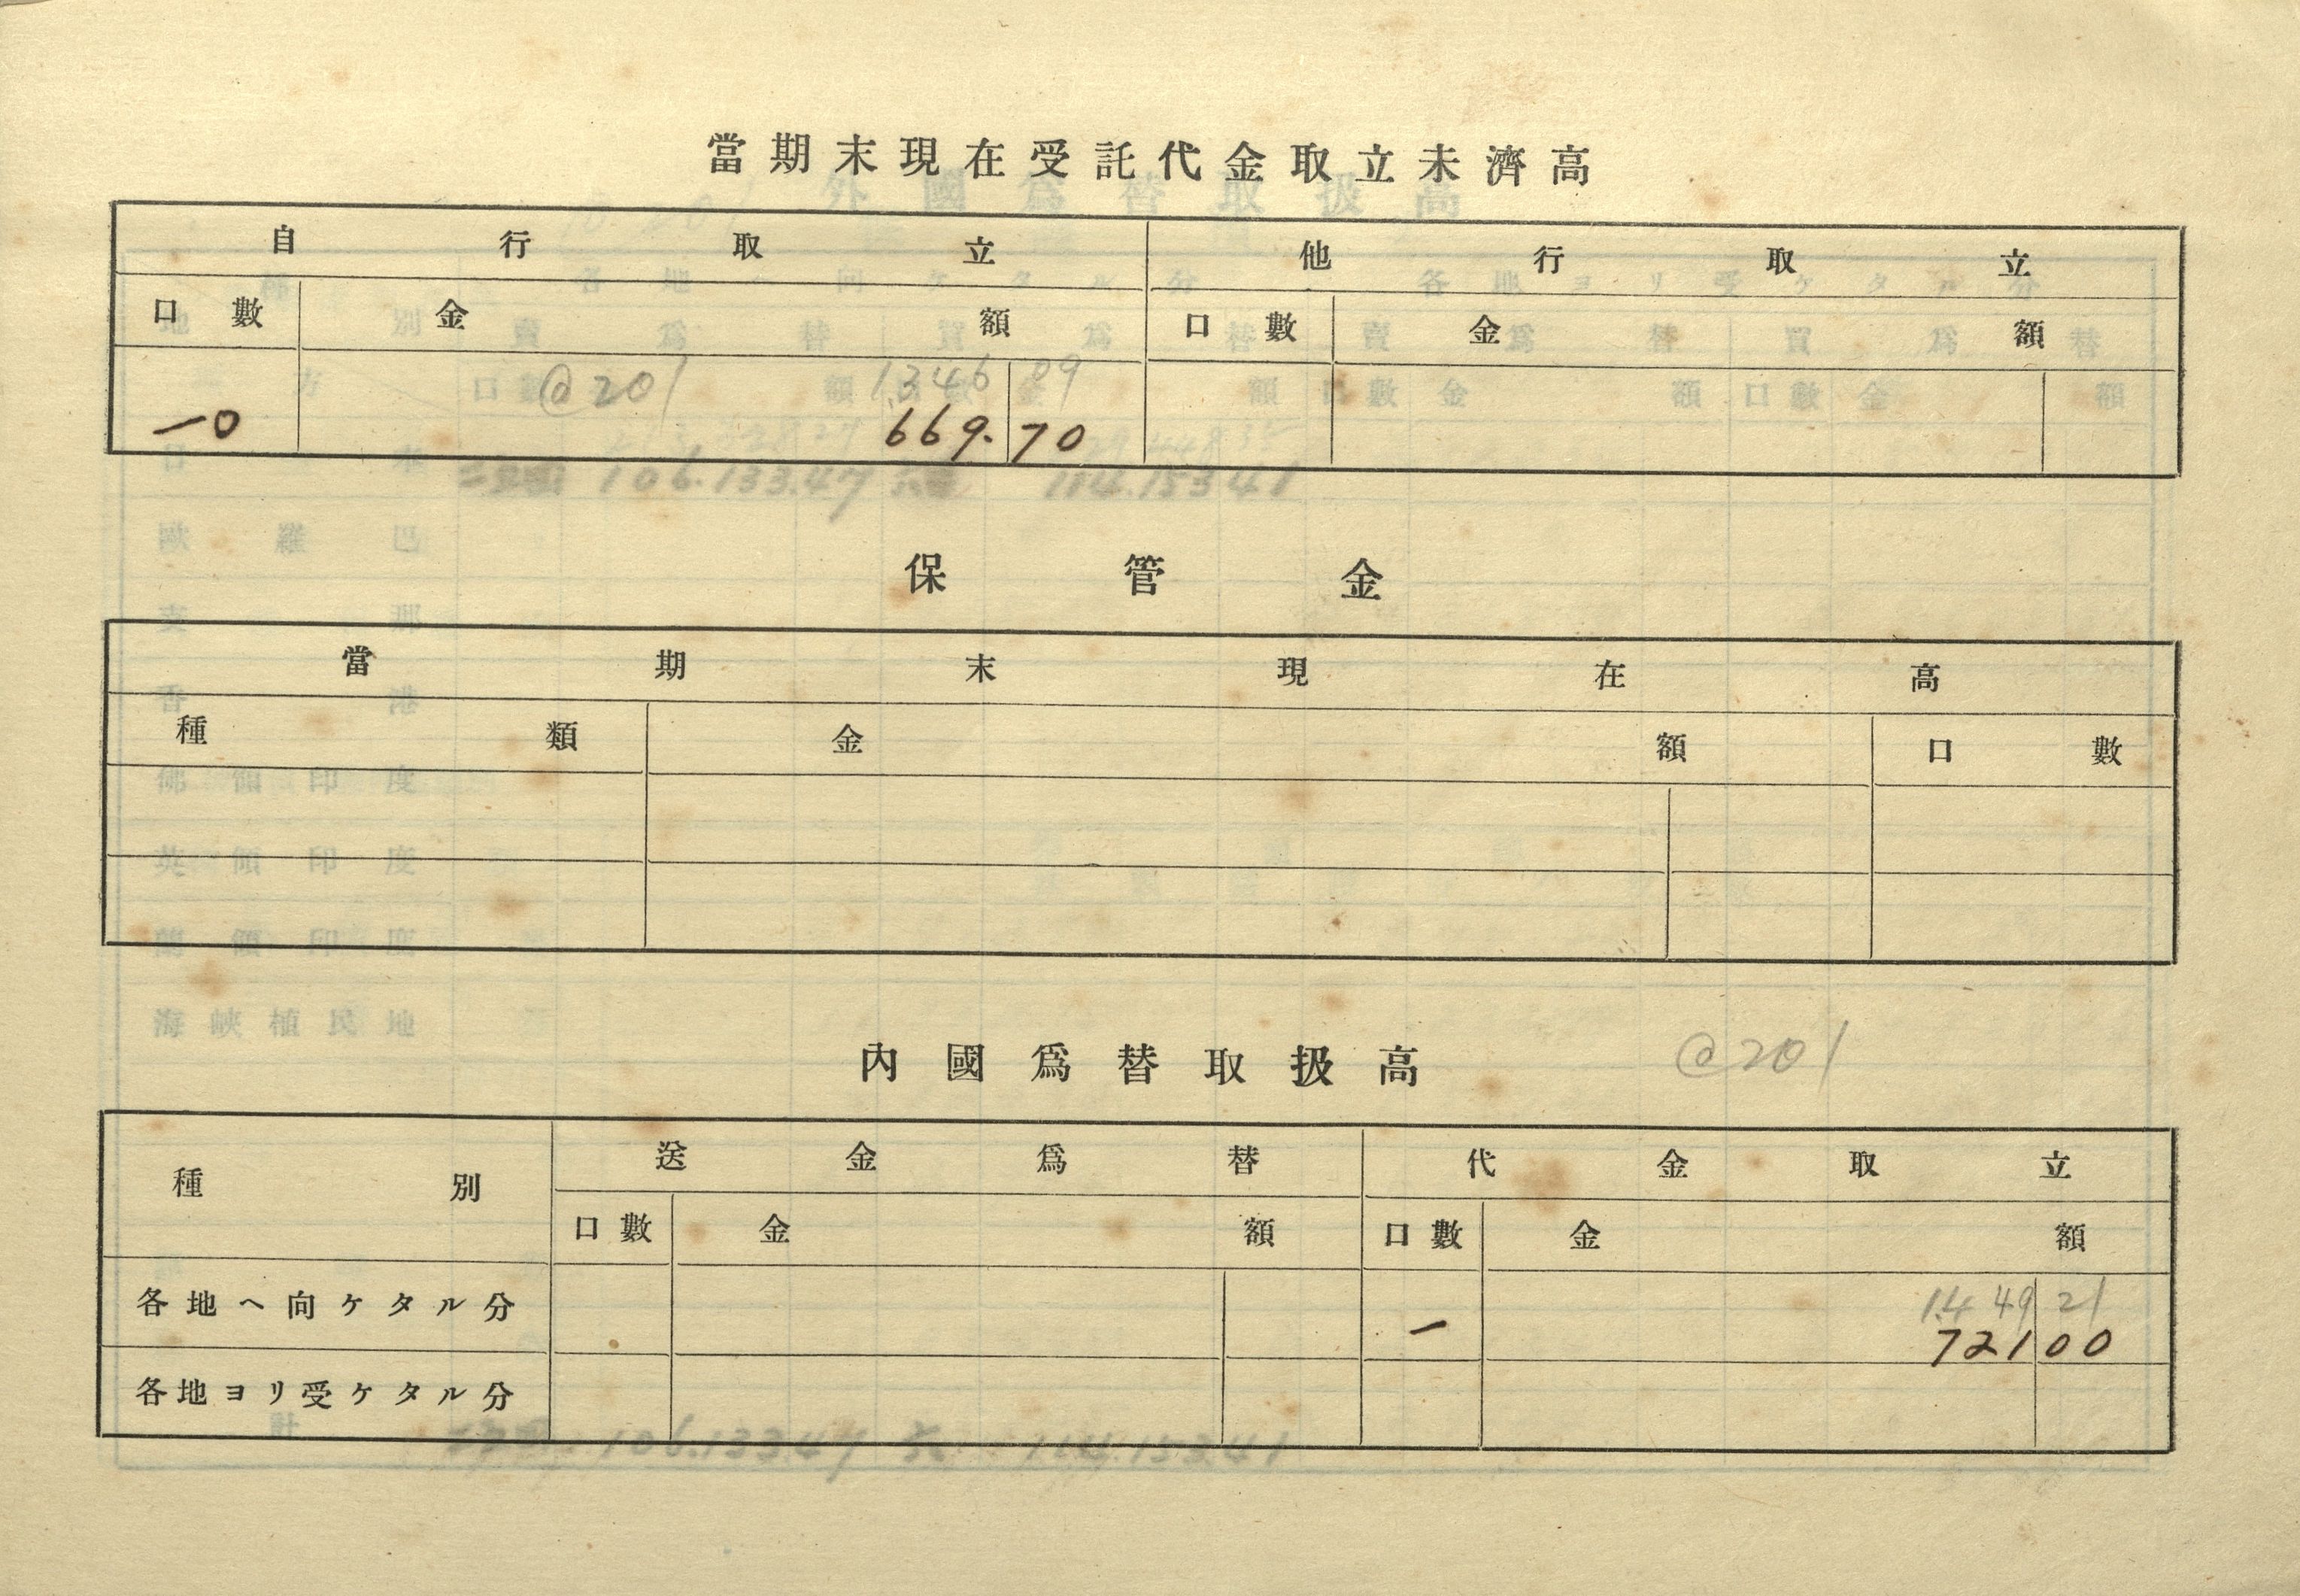 當期末現在受託代金取立未濟高
自行取立 他行取立
口數 金額 口數 金額
@201 1346 09
一0 669.70
保管金
當期末現在高
種類 金額 口數
內國爲替取扱高 @201
種別 送金爲替 代金取立
口數 金額 口數 金額
各地ヘ向ケタル分 1.449 21
一 721 00
各地ヨリ受ケタル分